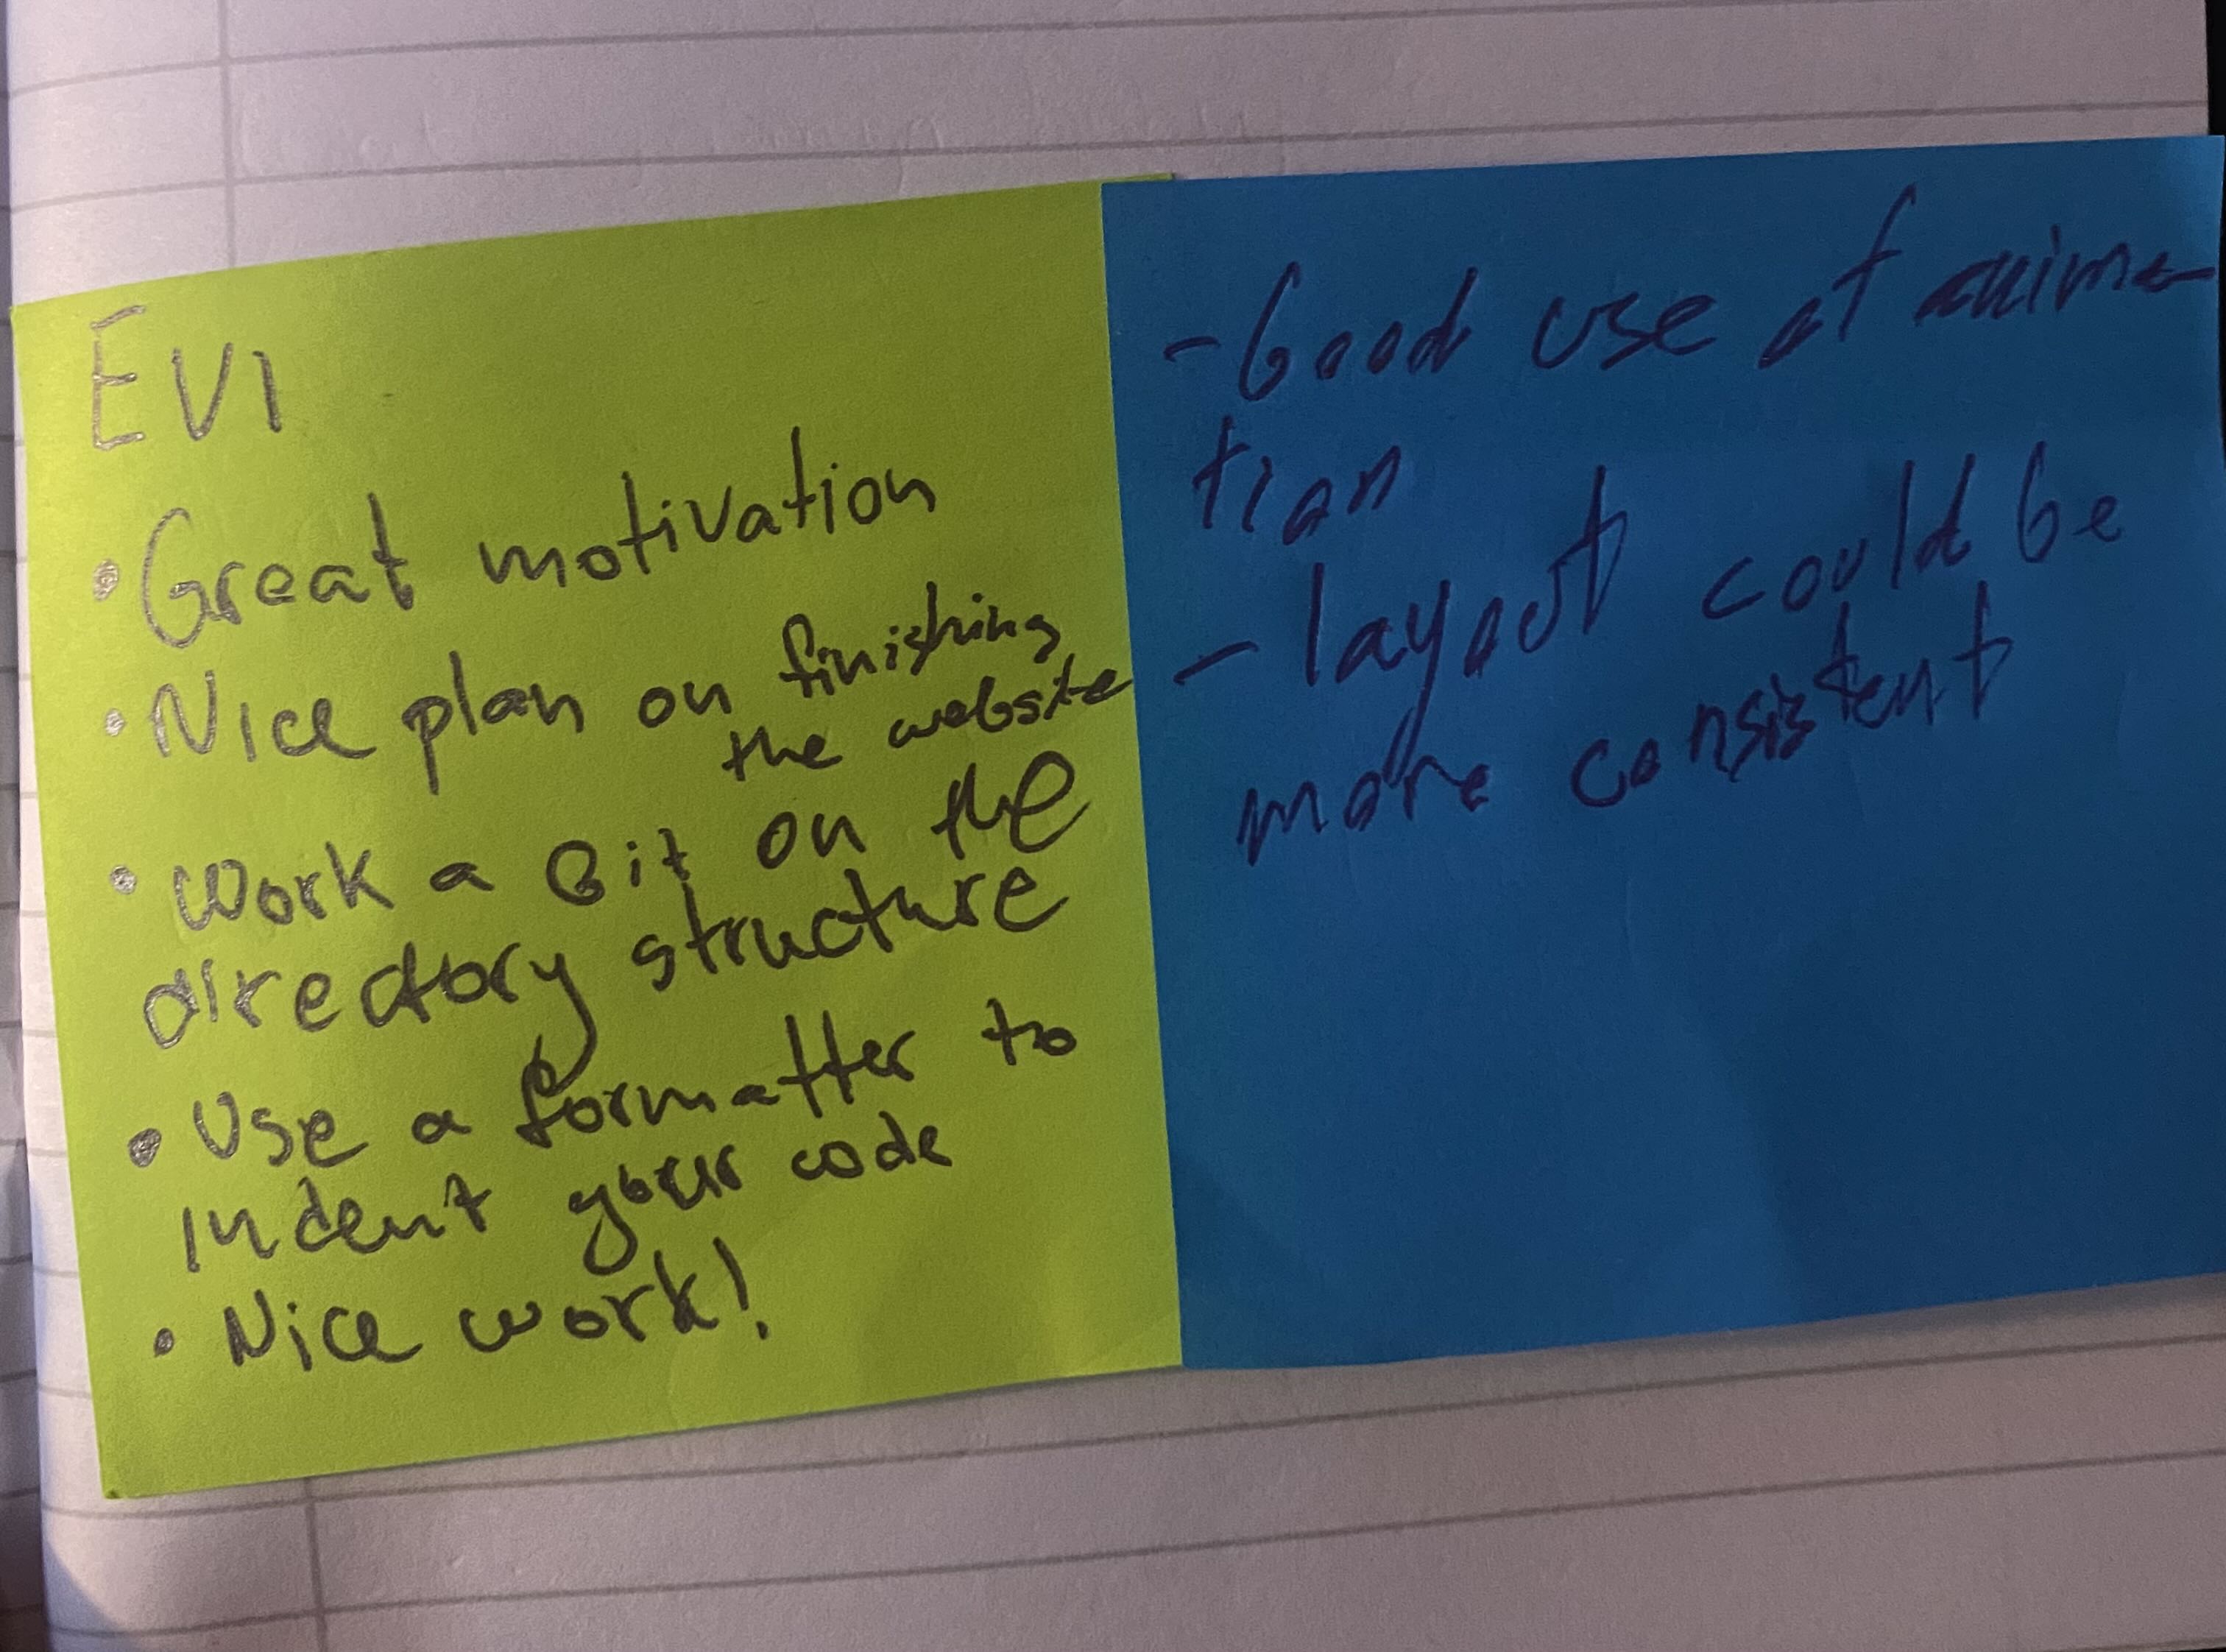 EVI
• Great motivation
• Nice plan on finishing
the website
• Work a Bit on the
directory structure
• Use a formatter to
indent your code
• Nice work!
- Good use of anima-
tion
- layout could be
more consistent